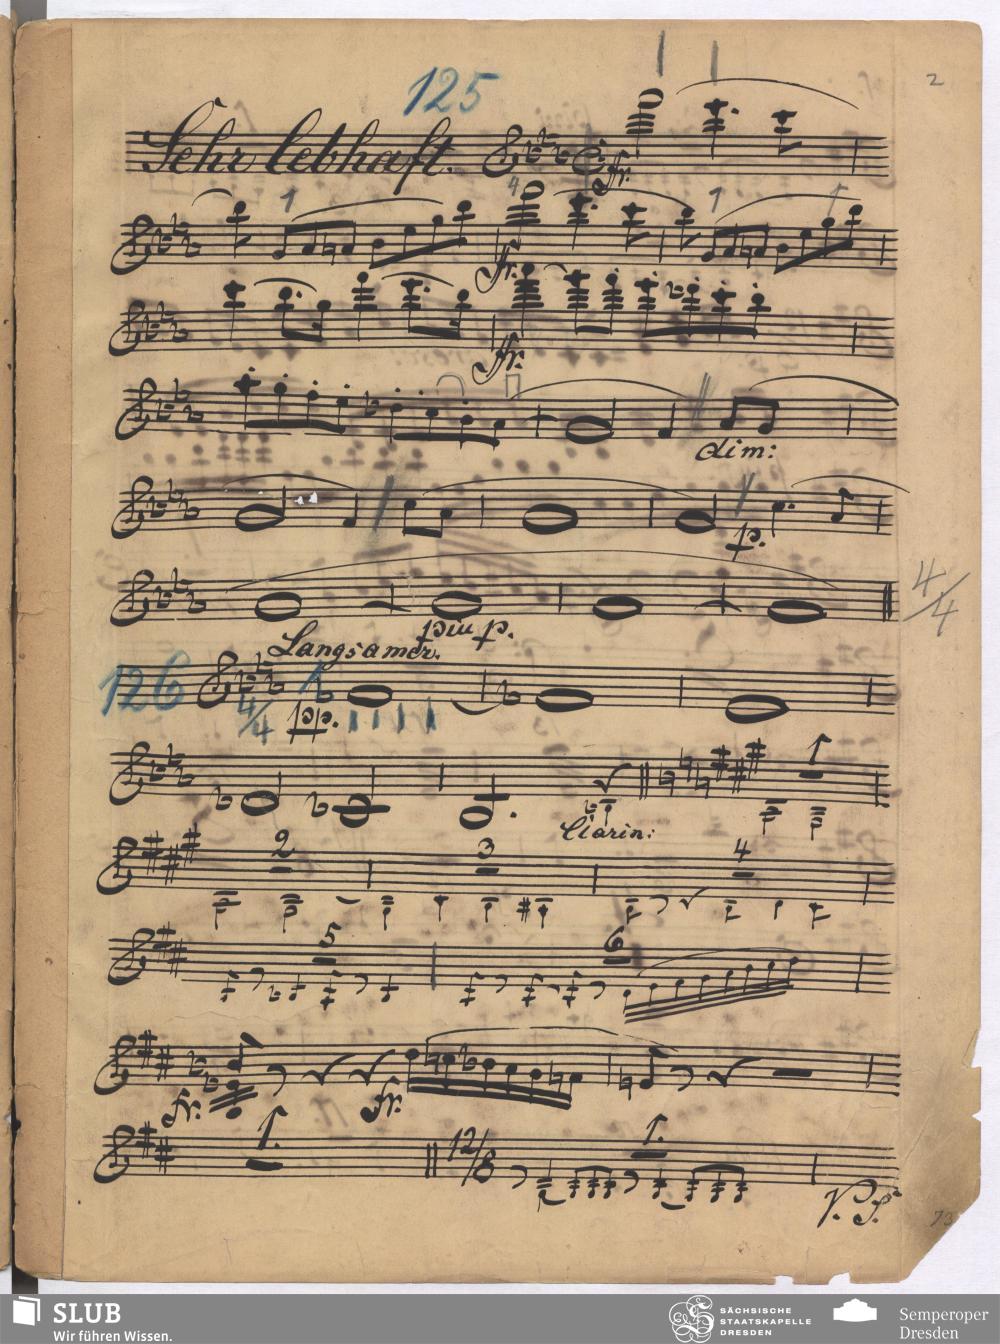 2
125
Sehr lebhaft.
fr.
4
1
1
1
fr.
fr.
dim:
p.
4/4
più p.
Langsamer.
126
1
4/4
pp.
1
Clarin:
2
3
4
5
6
fr.
fr.
1.
12/8
1.
V. S.
73
SLUB
Wir führen Wissen.
SÄCHSISCHE
STAATSKAPELLE
DRESDEN
Semperoper
Dresden